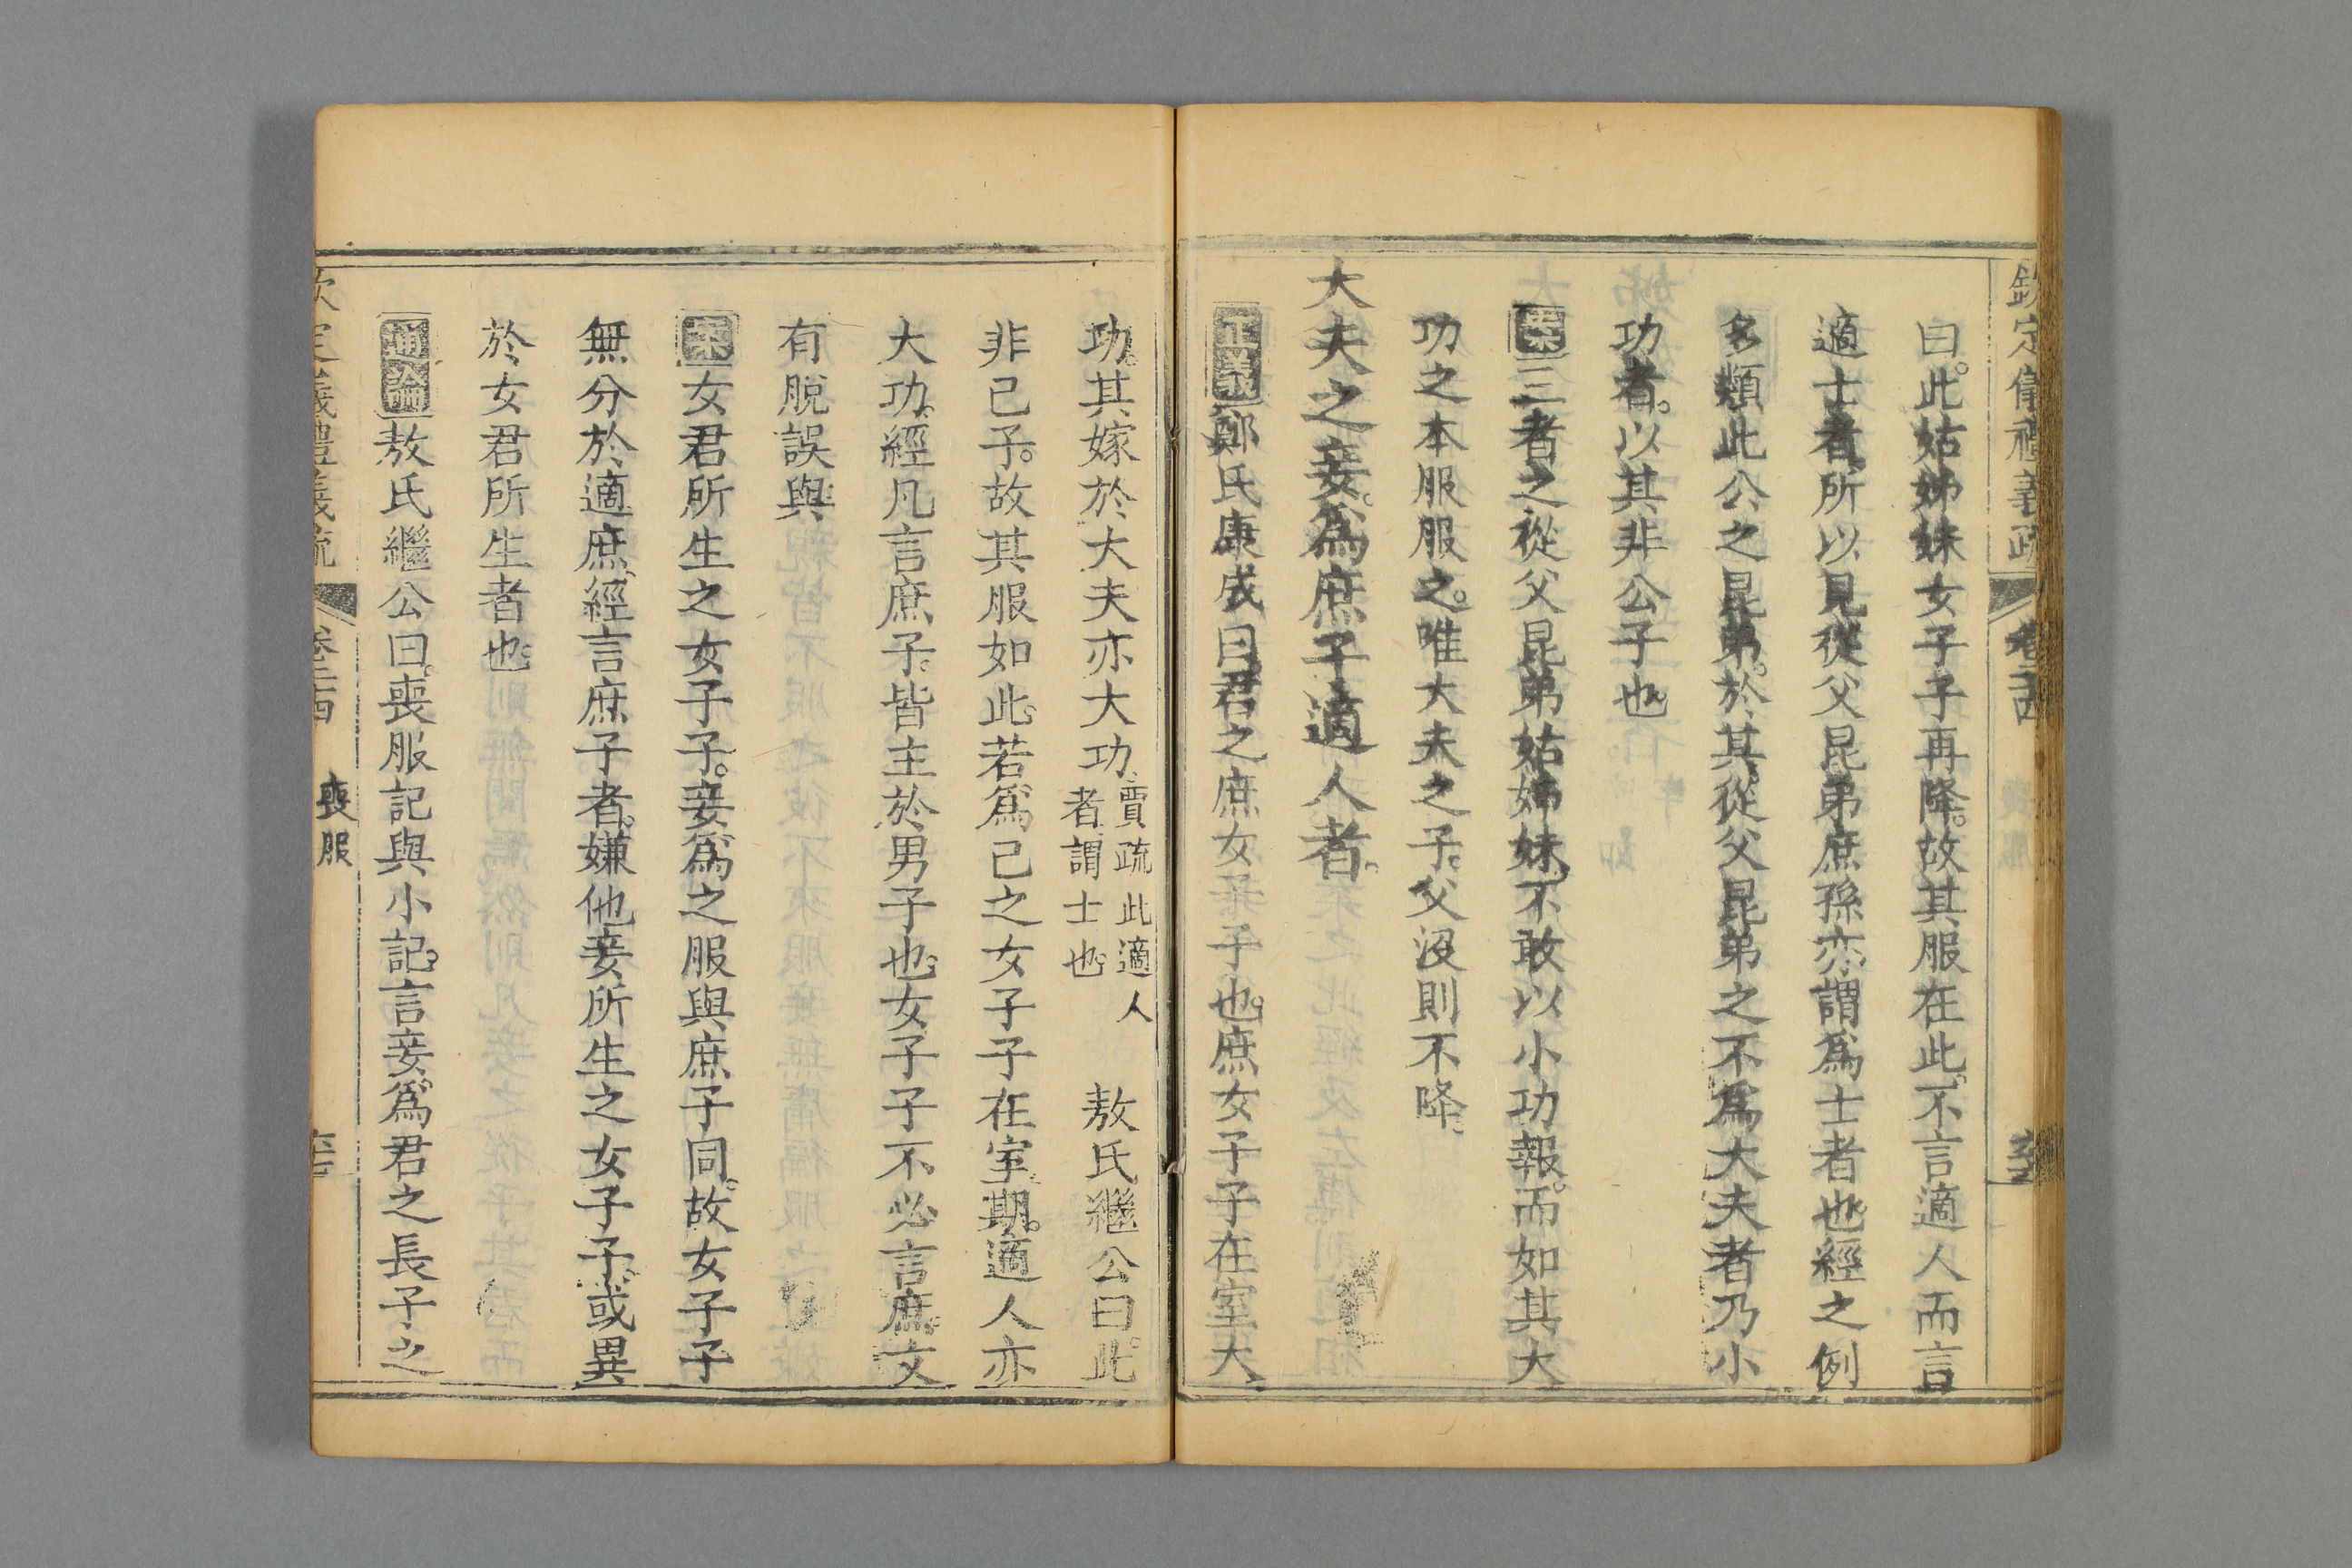 欽定儀禮義疏 卷二十四
曰。此姑姊妹女子子再降。故其服在此。不言適人而言
適士者。所以見從父昆弟庶孫亦謂爲士者也。經之例
多類此。公之昆弟。於其從父昆弟之不爲大夫者乃小
功者。以其非公子也
案三者之從父昆弟姑姊妹。不敢以小功報。而如其大
功之本服服之。唯大夫之子。父沒則不降。
大夫之妾。爲庶子適人者。
正義鄭氏康成曰。君之庶女子子也。庶女子子在室大
功。其嫁於大夫亦大功。賈疏此適人
者。謂士也。敖氏繼公曰。此
非己子。故其服如此。若爲己之女子子在室。期。適人亦
大功。經凡言庶子。皆主於男子也。女子子不必言庶。文
有脫誤與
案女君所生之女子子。妾爲之服與庶子同。故女子子
無分於適庶。經言庶子者。嫌他妾所生之女子子。或異
於女君所生者也。
通論敖氏繼公曰。喪服記與小記。言妾爲君之長子之
欽定儀禮義疏 卷二十四 喪服